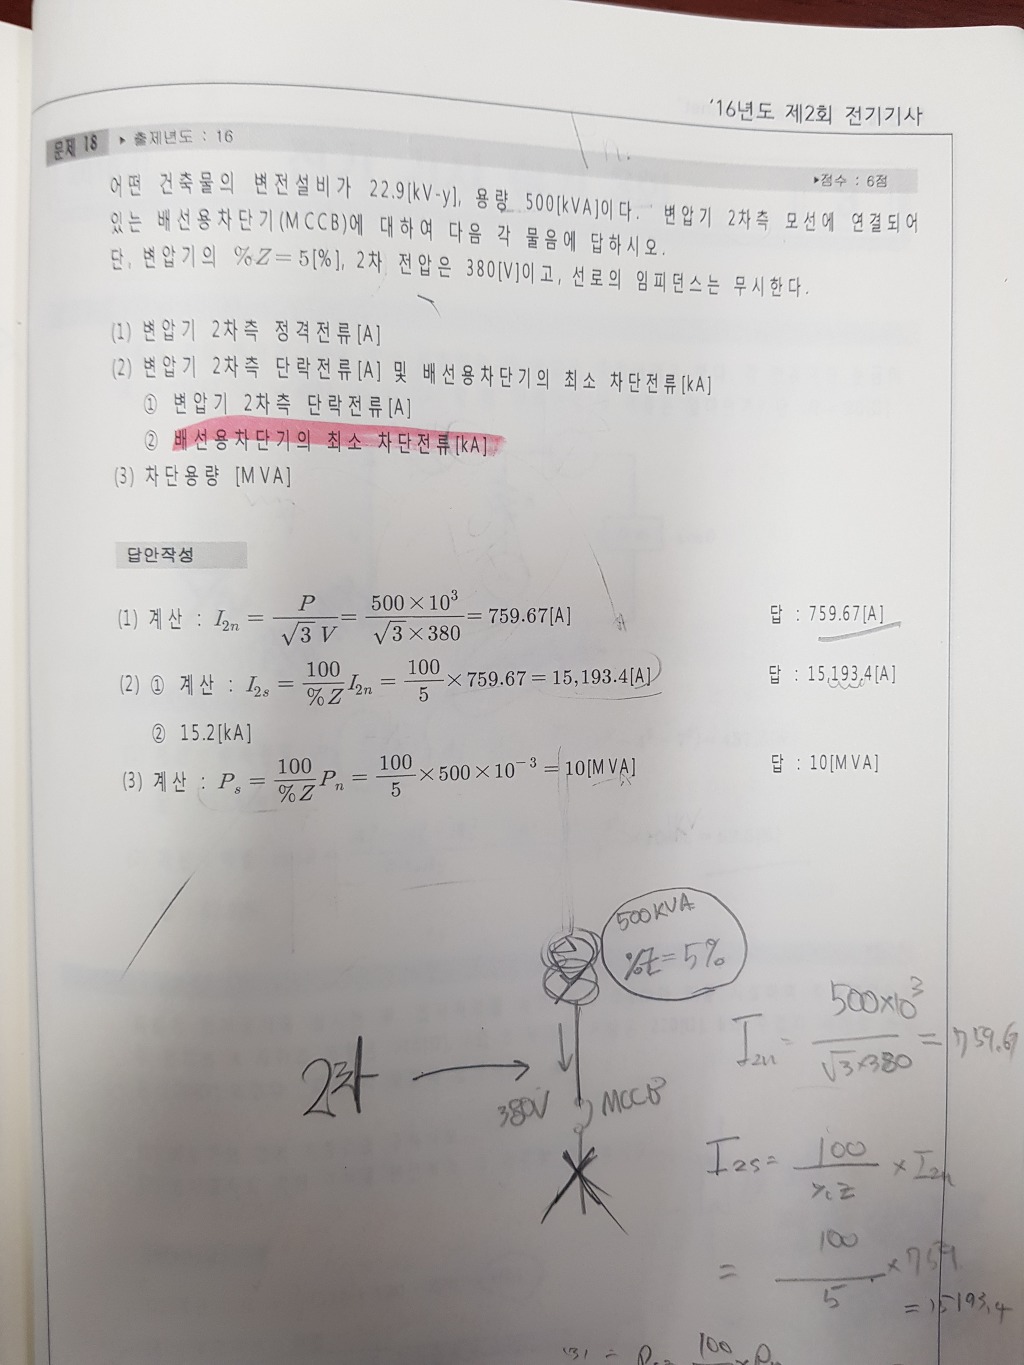 '16년도 제2회 전기기사
문제 18 ▶ 출제년도 : 16
▶점수 : 6점
어떤 건축물의 변전설비가 22.9[kV-y], 용량 500[kVA]이다. 변압기 2차측 모선에 연결되어
있는 배선용차단기(MCCB)에 대하여 다음 각 물음에 답하시오.
단, 변압기의 %Z = 5[%], 2차 전압은 380[V]이고, 선로의 임피던스는 무시한다.
(1) 변압기 2차측 정격전류[A]
(2) 변압기 2차측 단락전류[A] 및 배선용차단기의 최소 차단전류[kA]
① 변압기 2차측 단락전류[A]
② 배선용차단기의 최소 차단전류[kA]
(3) 차단용량 [MVA]
답안작성
(1) 계산 : I₂ₙ = P / √3 V = 500×10³ / √3×380 = 759.67[A] 답 : 759.67[A]
(2) ① 계산 : I₂ₛ = 100 / %Z I₂ₙ = 100 / 5 × 759.67 = 15,193.4[A] 답 : 15,193.4[A]
② 15.2[kA]
(3) 계산 : Pₛ = 100 / %Z Pₙ = 100 / 5 × 500 × 10⁻³ = 10[MVA] 답 : 10[MVA]
500KVA
%Z = 5%
I₂ₙ = 500×10³ / √3×380 = 759.6
2차
380V MCCB
I₂ₛ = 100 / %Z × I₂ₙ
= 100 / 5 × 759
= 15193.4